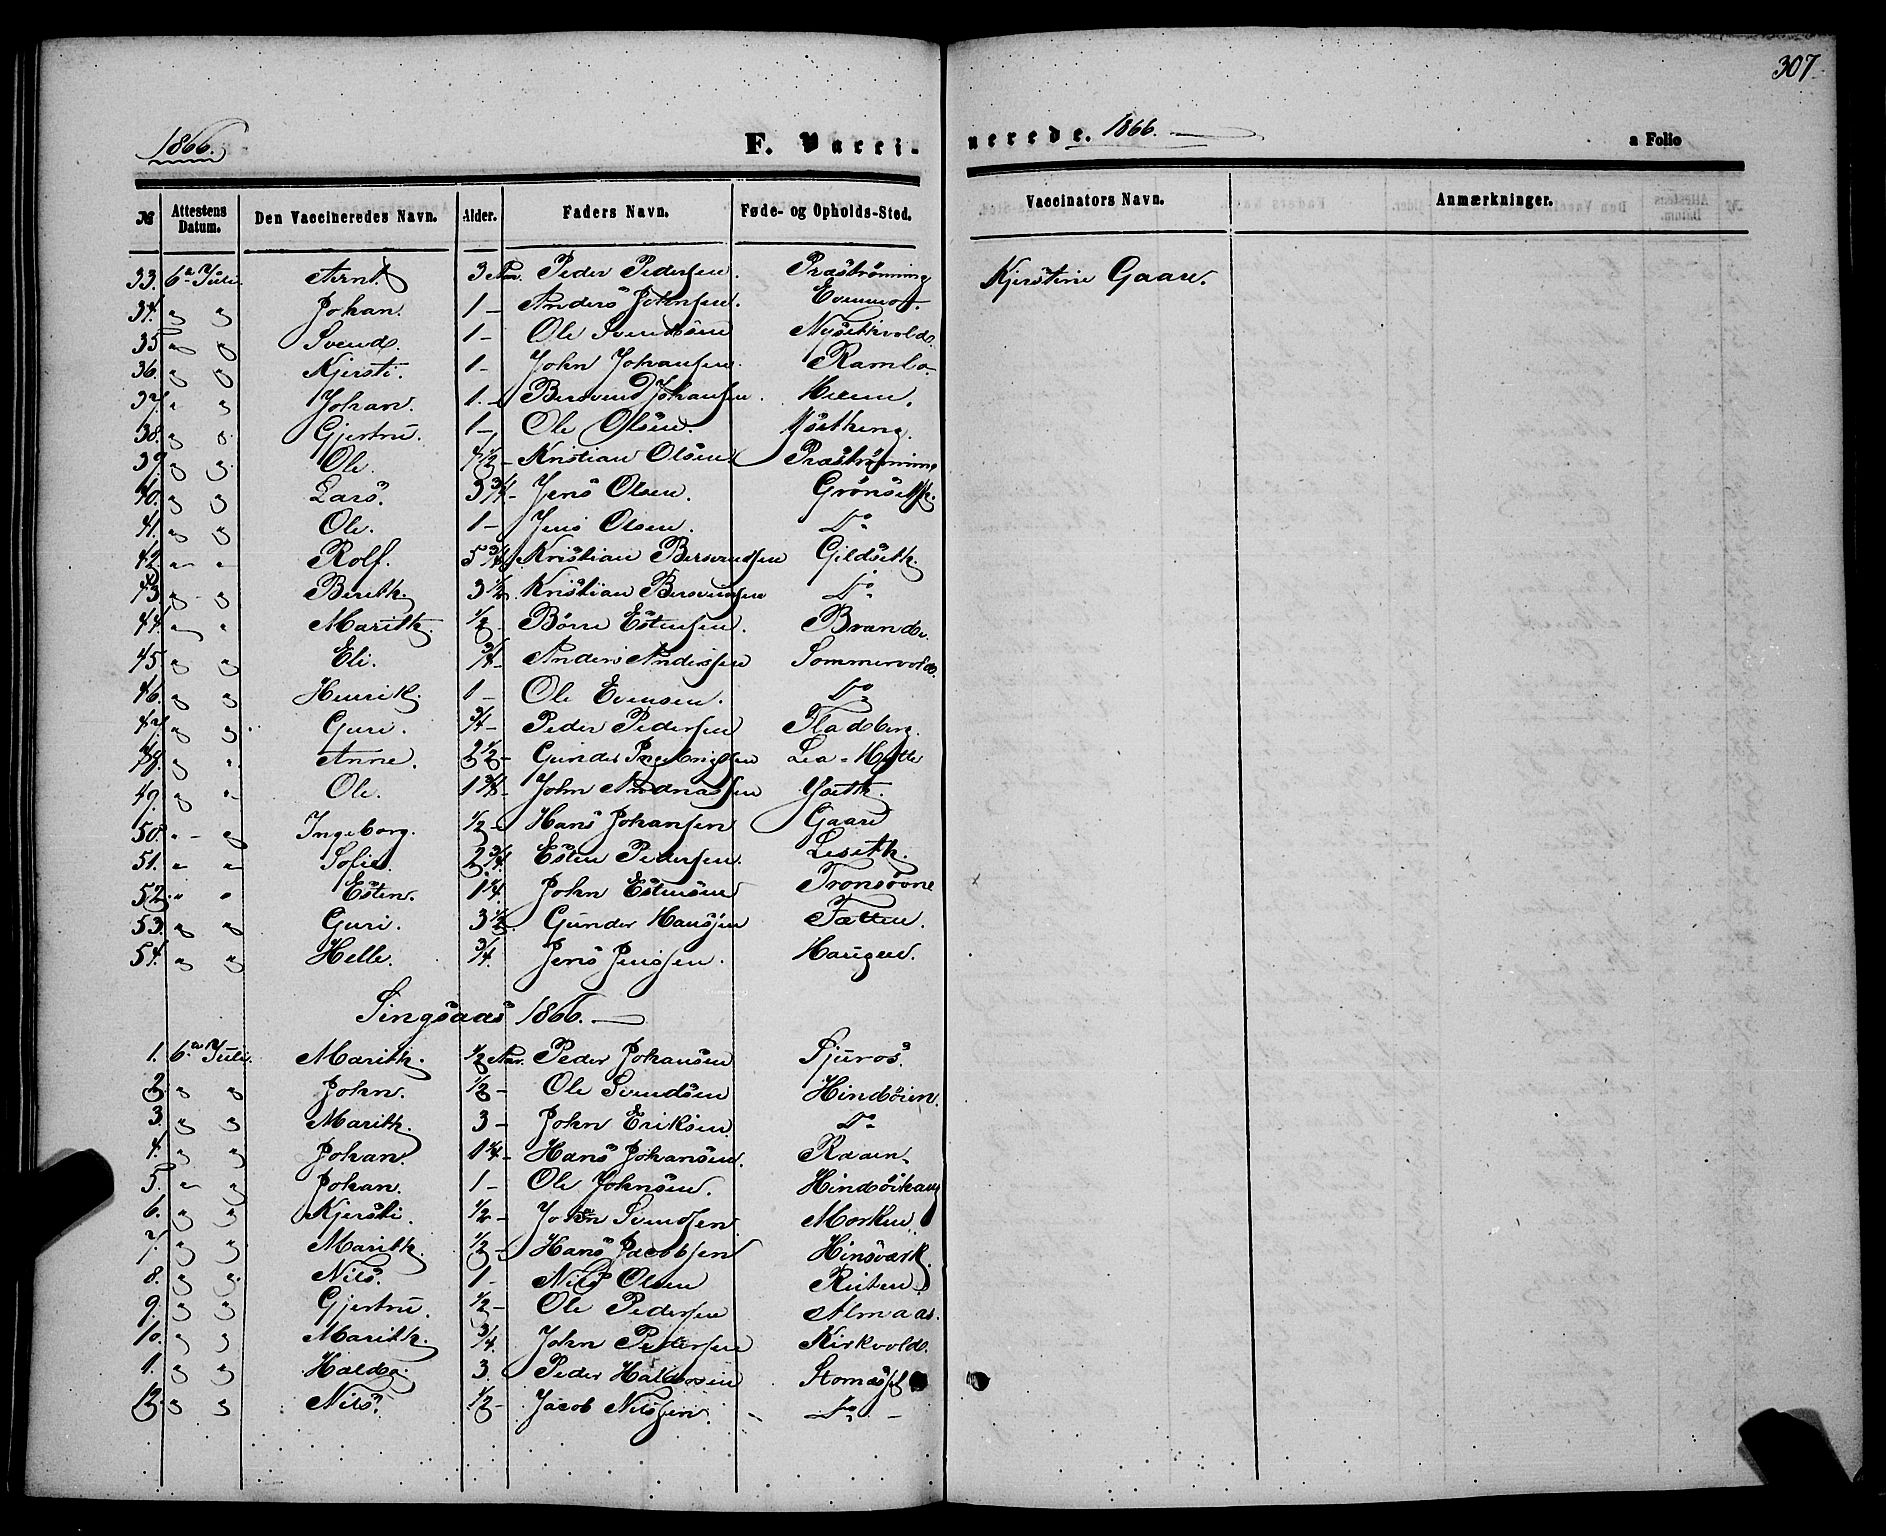 307
1866. F. Vacci-
nerede. 1866. a Folio
№ Attestens Datum. Den Vaccineredes Navn. Alder. Faders Navn. Føde- og Opholds-Sted. Vaccinators Navn. Anmærkninger.
33. 6te Juli. Arnt 3 Aar. Peder Pedersen. Præstrønning Kjerstine Gaare.
34. " " Johan. 1 - Anders Johnsen. Evenmo.
35 " " Svend. 1 - Ole Svendsen Nysethvold.
36. " " Kjersti. 1 - John Johansen. Ramlo.
37. " " Johan. 1. - Bersvend Johansen. Moen.
38. " " Gjertru. 1 - Ole Olsen.
39 " " Ole. 4 1/2 - Kristian Olsen. Præstrønning
40. " " Lars. 3 3/4 - Jens Olsen. Grønseth.
41. " " Ole. 1 - Jens Olsen. Do
42. " " Rolf. 5 3/4 Kristian Bersvendsen Gildseth.
43. " " Berith. 3 1/2 Kristian Bersvendsen Do
44. " " Marith. 1/2 - Børre Estensen. Brande.
45 " " Eli. 3/4 - Anders Anderssen Sommervold
46. " " Henrik. 1 - Ole Evensen. Do
47. " " Guri. 3/4 - Peder Pedersen Fladberg.
48. " " Anne. 2 1/2 - Gunder Ingebrigtsen Lea-Hytte
49. " " Ole. 1 3/4 - John Andreassen
50. " " Ingeborg. 1/2 - Hans Johansen Gaare
51. " " Sofie. 2 3/4. Esten Pedersen. Leseth.
52. " " Esten. 1 1/4. John Estensen Tronsovne
53. " " Guri. 3 1/2. Gunder Hanssen Fætten.
54. " " Helle. 3/4. Jens Jenssen. Haugen.
Singsaas 1866.
1. 6te Juli. Marith. 1/2 Aar. Peder Johansen Sjuros.
2. " " John. 1/2 - Ole Svendsen Hindøien.
3. " " Marith. 3 - John Eriksen Do
4. " " Johan. 1 1/4 - Hans Johansen. Raaen
5. " " Johan. 1 - Ole Johnsen. Hindøihaug
6. " " Kjersti. 1/2 - John Svendsen. Morken.
7. " " Marith. 1/2 - Hans Jacobsen Hinsværk
8. " " Nils. 1 - Nils Olsen Ruten
9. " " Gjertru. 1/2 - Ole Pedersen Almaas.
10. " " Marith. 3/4. John Pedersen Kirkvold.
11. " " Haldo. 3. Peder Haldosen
12. " " Nils. 1/2 - Jacob Nilssen. - Do -